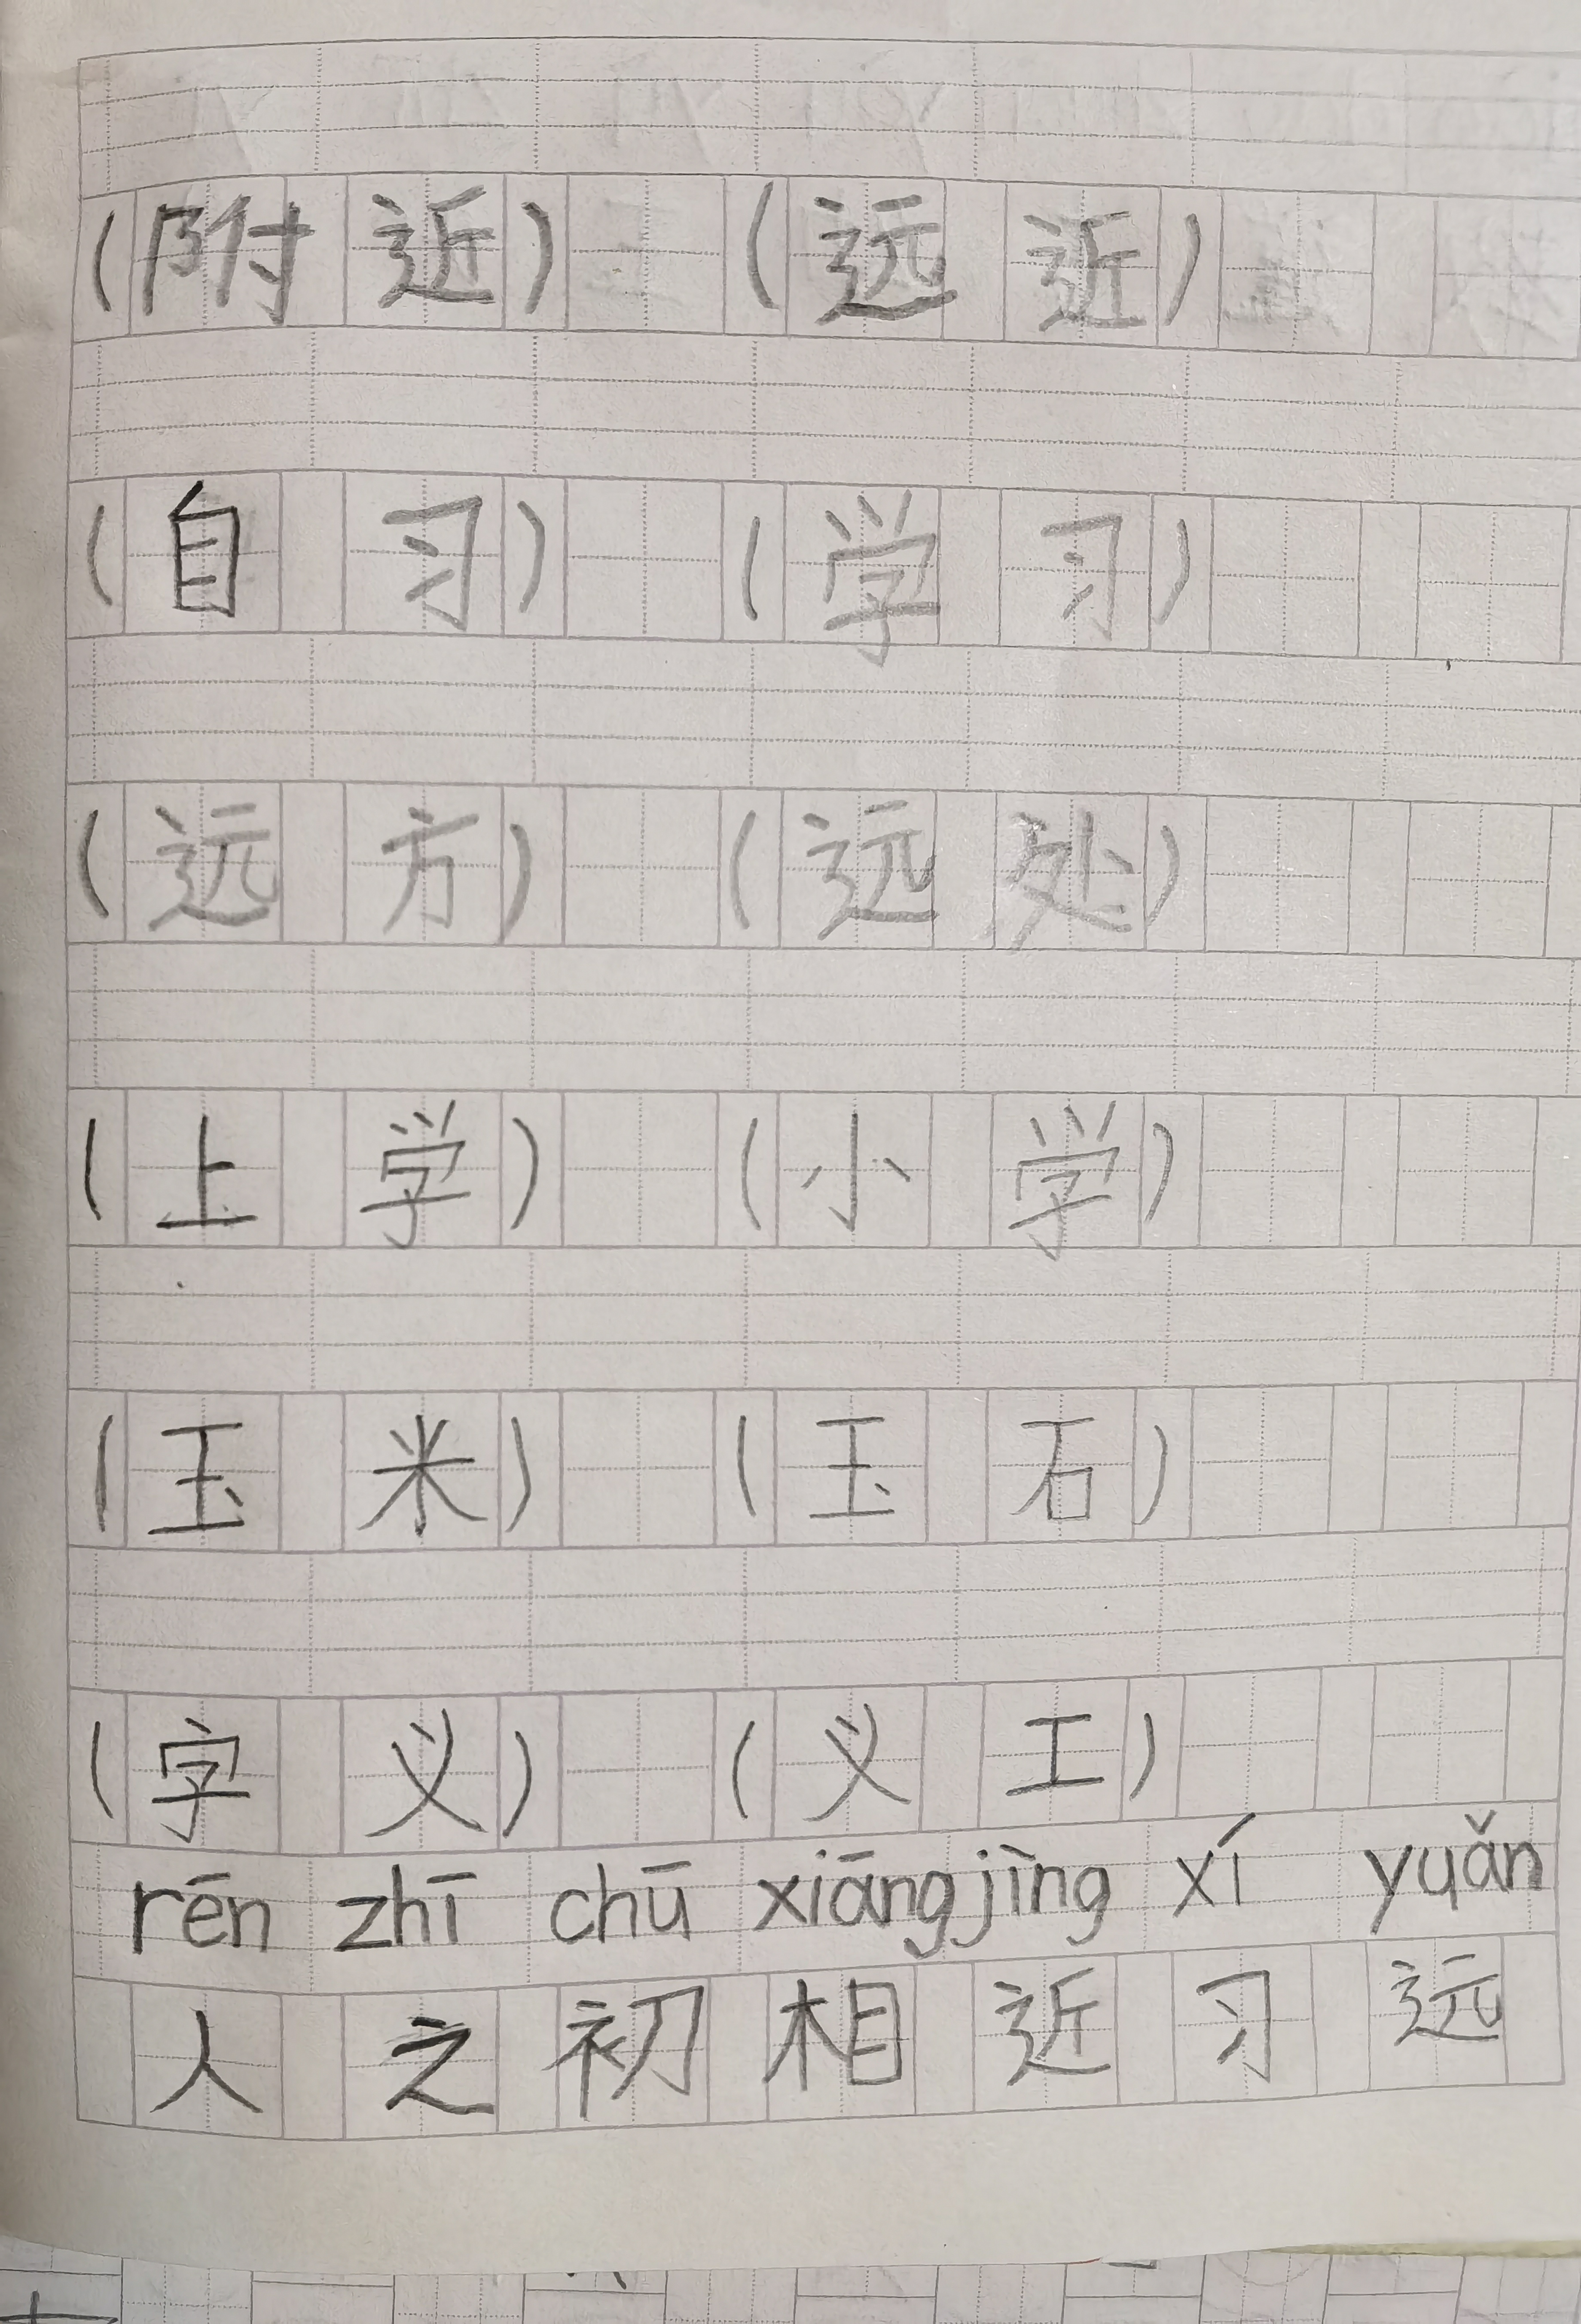 (附近) (远近)
(自习) (学习)
(远方) (远处)
(上学) (小学)
(玉米) (玉石)
(字义) (义工)
rēn zhī chū xiāng jìng xí yuǎn
人之初相近习远